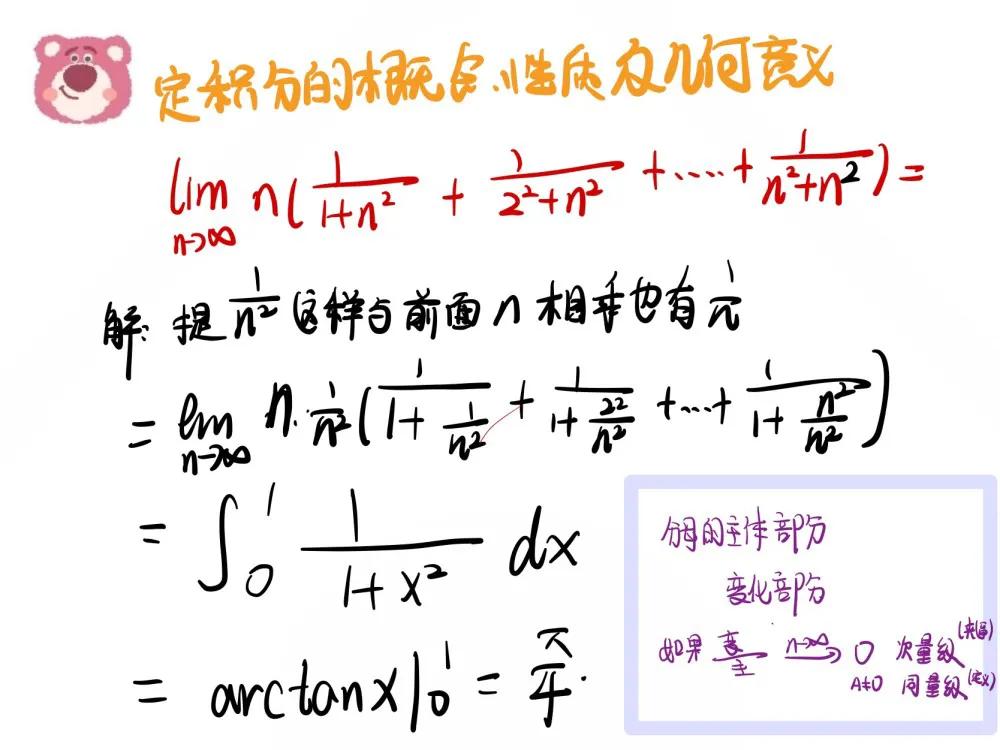 定积分的概念、性质及几何意义
lim n→∞ n(1/(1+n²) + 1/(2²+n²) + .... + 1/(n²+n²)) =
解: 提 1/n² 这样与前面 n 相乘也有 1/n
= lim n→∞ n·1/n² (1/(1+1/n²) + 1/(1+2²/n²) + ... + 1/(1+n²/n²))
= ∫₀¹ 1/(1+x²) dx
= arctanx|₀¹ = π/4.
分母的主体部分
变化部分
如果 变/主 n→∞ → 0 次量级(夹逼)
A≠0 同量级(定义)